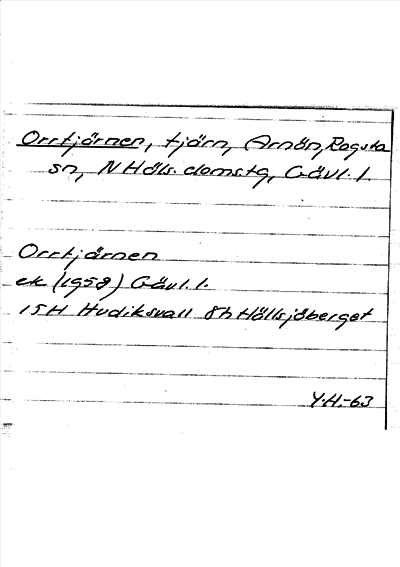 Orrtjärnen, tjärn, Arnön, Rogsta
sn, N Häls. domstg, Gävl. l.
Orrtjärnen
ek (1958) Gävl. l.
15H Hudiksvall 8h Hällsjöberget
Y.H.-63